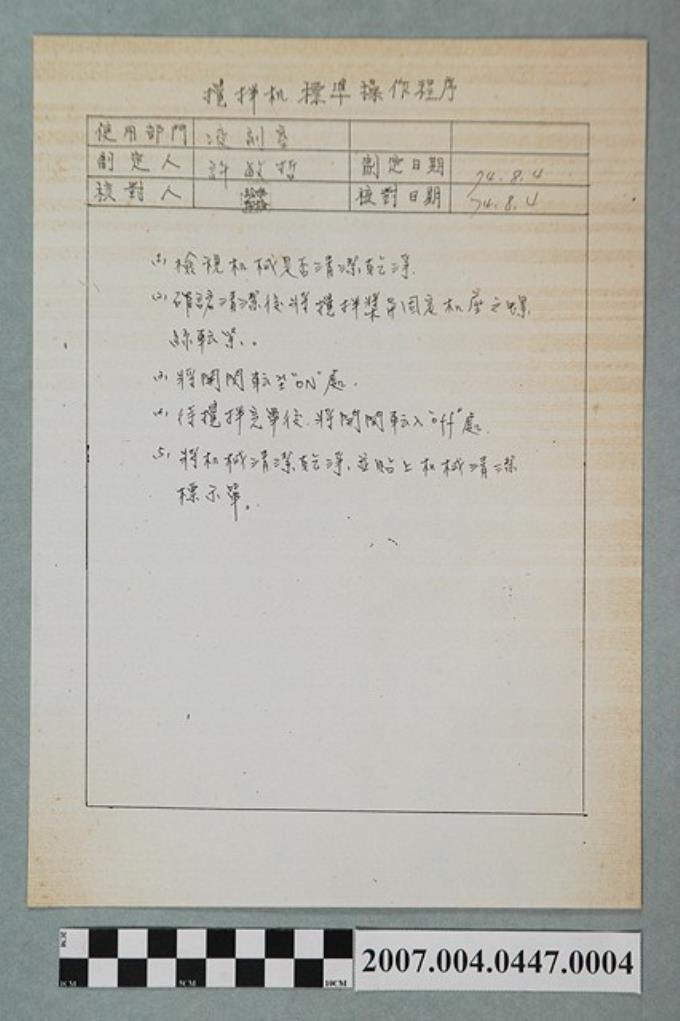 攪拌机標準操作程序
使用部門 液剤室
制定人 許敏哲 制定日期 74.8.4
核對人 核對日期 74.8.4
(1) 檢視机械是否清潔乾淨.
(2) 確認清潔後將攪拌槳与固定机座之螺
絲転緊。
(3) 將開関転至"ON"處.
(4) 待攪拌完畢後.將開関転入"off"處.
(5) 將机械清潔乾淨.並貼上机械清潔
標示單。
2CM
1CM 5CM 10CM
2007.004.0447.0004